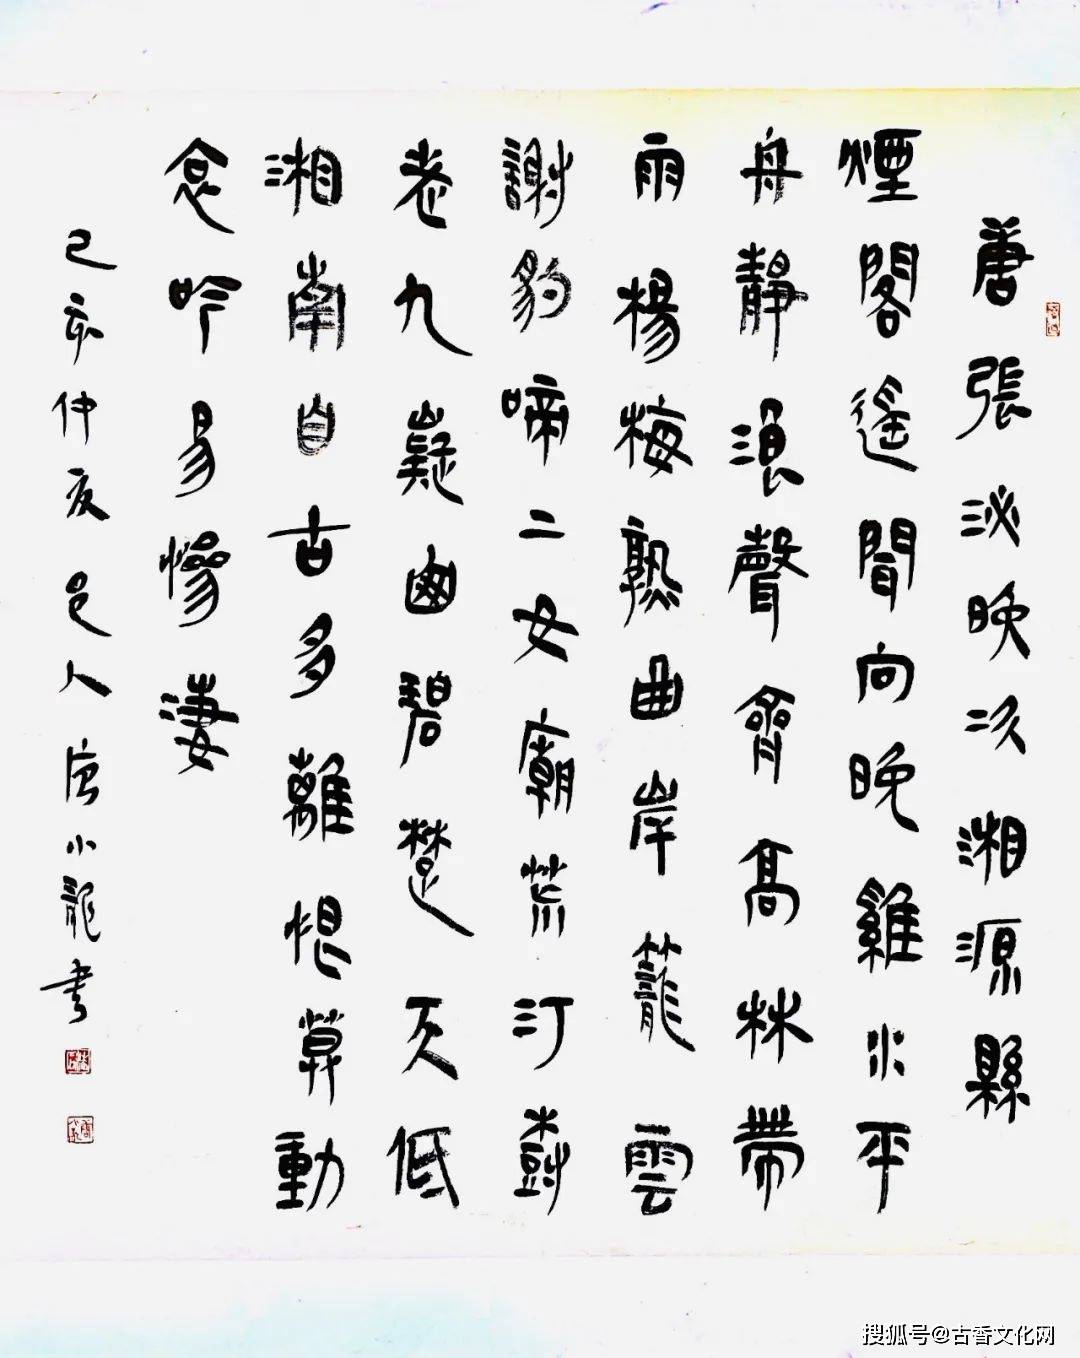 唐張泌晚次湘源縣
煙閣遙聞向晚雞水平
舟靜浪聲齊高林帶
雨楊梅熟曲岸籠雲
謝豹啼二女廟荒汀樹
老九嶷碧楚天低
湘南自古多離恨莫動
念吟易慘淒
己亥仲夏邑人唐小龍書
搜狐号@古香文化网